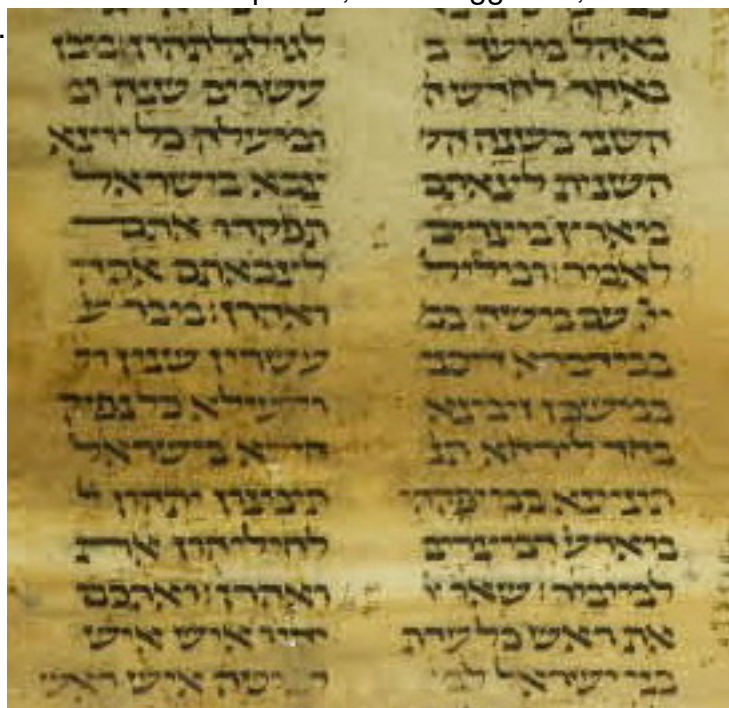 באהל מועד ב
באחד לחדש ה
השני בשנה הש
השנית לצאתם
מארץ מצרים
לאמר: ומליל
יי עם משה במ
במדברא דסיני
במשכן זימנא
בחד לירחא תנ
תנינא במיפקהו
מארעא דמצרים
למימר: שאו
את ראש כל עדת
בני ישראל למ
לגולגלתהון: מבן
עשרים שנה ומ
ומעלה כל יוצא
צבא בישראל
תפקדו אתם
לצבאתם אתה
ואהרן: מבר ע
עשרין שנין ול
ולעילא כל נפיק
חילא בישראל
תימנון יתהון ל
לחיליהון את
ואהרן: ואתכם
יהיו איש איש
למטה איש ראש